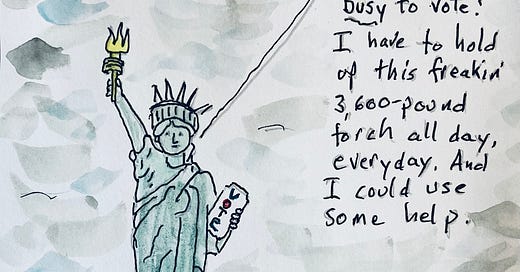 busy to vote!
I have to hold
of this freakin'
3,600-pound
torch all day,
everyday. And
I could use
some help.